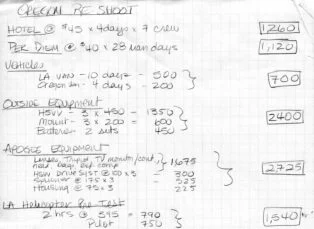 OREGON RE SHOOT
HOTEL @ $45 x 4 days x 7 crew 1260
PER DIEM @ $40 x 28 man days 1,120
VEHICLES
LA vans - 10 days - 500
Oregon - 4 days - 200 700
OUTSIDE EQUIPMENT
3 x 450 - 1350
Mount - 3 x 200 = 600 2400
2 sets 450
APOGEE EQUIPMENT
Lenses, Tripod, TV monitor/cont, 1,675
Head, Bags,
HSW Drive Syst @ 100 x 3 = 300 2725
@ 175 x 3 - 525
Housing @ 75 x 3 225
LA Helicopter Pre Test
2 hrs @ 395 = 790 1,540
Pilot 750